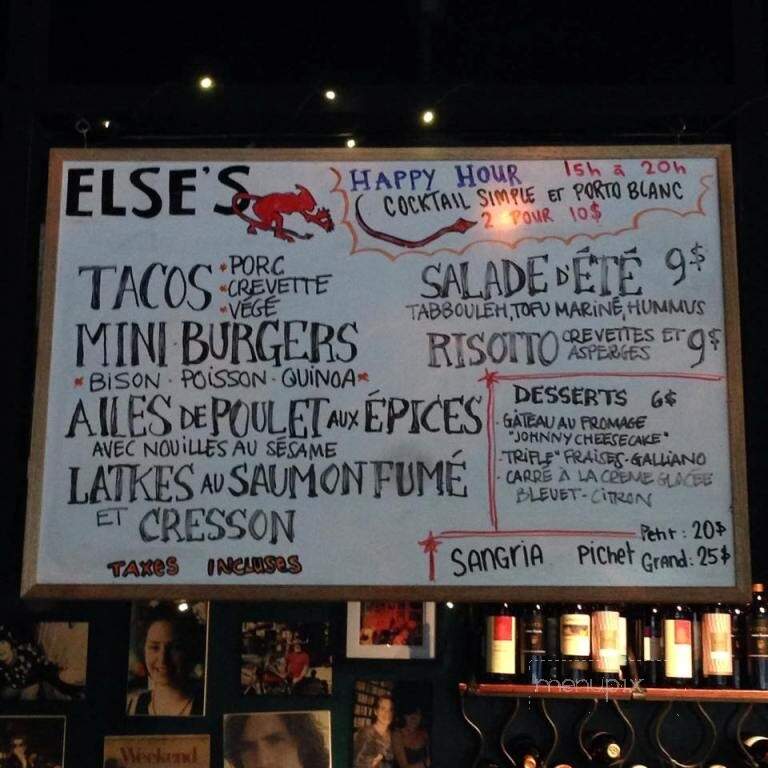 ELSE'S
HAPPY HOUR 15h à 20h
COCKTAIL SIMPLE ET PORTO BLANC
2 POUR 10$
TACOS
*PORC
*CREVETTE
*VÉGÉ
MINI BURGERS
*BISON · POISSON · QUINOA*
AILES DE POULET AUX ÉPICES
AVEC NOUILLES AU SÉSAME
LATKES AU SAUMON FUMÉ
ET CRESSON
TAXES INCLUSES
SALADE D'ÉTÉ 9$
TABBOULEH, TOFU MARINÉ, HUMMUS
RISOTTO CREVETTES ET
ASPERGES 9$
DESSERTS 6$
· GÂTEAU AU FROMAGE
"JOHNNY CHEESECAKE"
· "TRIFLE" FRAISES-GALLIANO
· CARRÉ À LA CRÈME GLACÉE
BLEUET-CITRON
SANGRIA Pichet Petit: 20$
Grand: 25$
Weekend
menupix